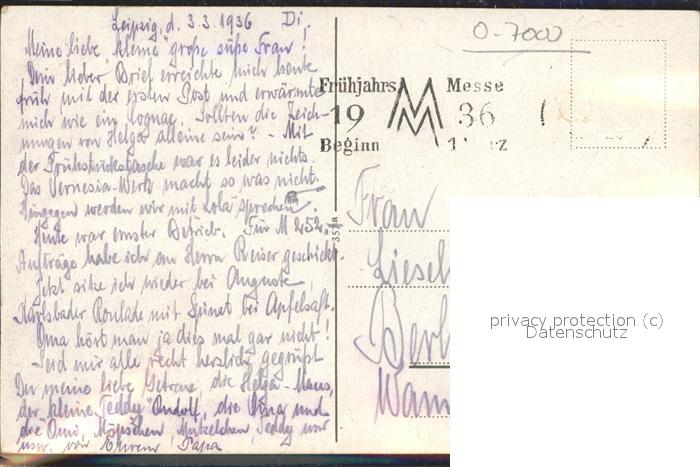 Leipzig, d. 3.3.1936 Di.
Meine liebe "kleine" große süße Frau!
Dein lieber Brief erreichte mich heute
früh mit der ersten Post und erwärmte
mich wie ein Cognac. Sollten die Zeich-
nungen von Helga alleine sein? - Mit
der Frühstückstasche war es leider nichts.
Das Vernesia-Werk macht so was nicht.
Hingegen werden wir mit Lola sprechen.
Heute war ernster Betrieb. Für M 252.-
Aufträge habe ich an Herrn Reiser geschickt.
Jetzt sitze ich wieder bei Auguste,
Karlsbader Roulade mit Spinat bei Apfelsaft.
Oma hört man ja dies mal gar nicht!
Seid mir alle recht herzlich gegrüßt
Du meine liebe Getraue, die Helga-Maus,
der kleine "Teddy" Rudolf, die Oma und
die Omi, Möpschen, Mützelchen, Teddy
usw. von Eurem Papa
O-7000
Frühjahrs Messe
19 MM 36
Beginn 1. rz
Frau
Liesel
Berl
Wann
privacy protection (c)
Datenschutz